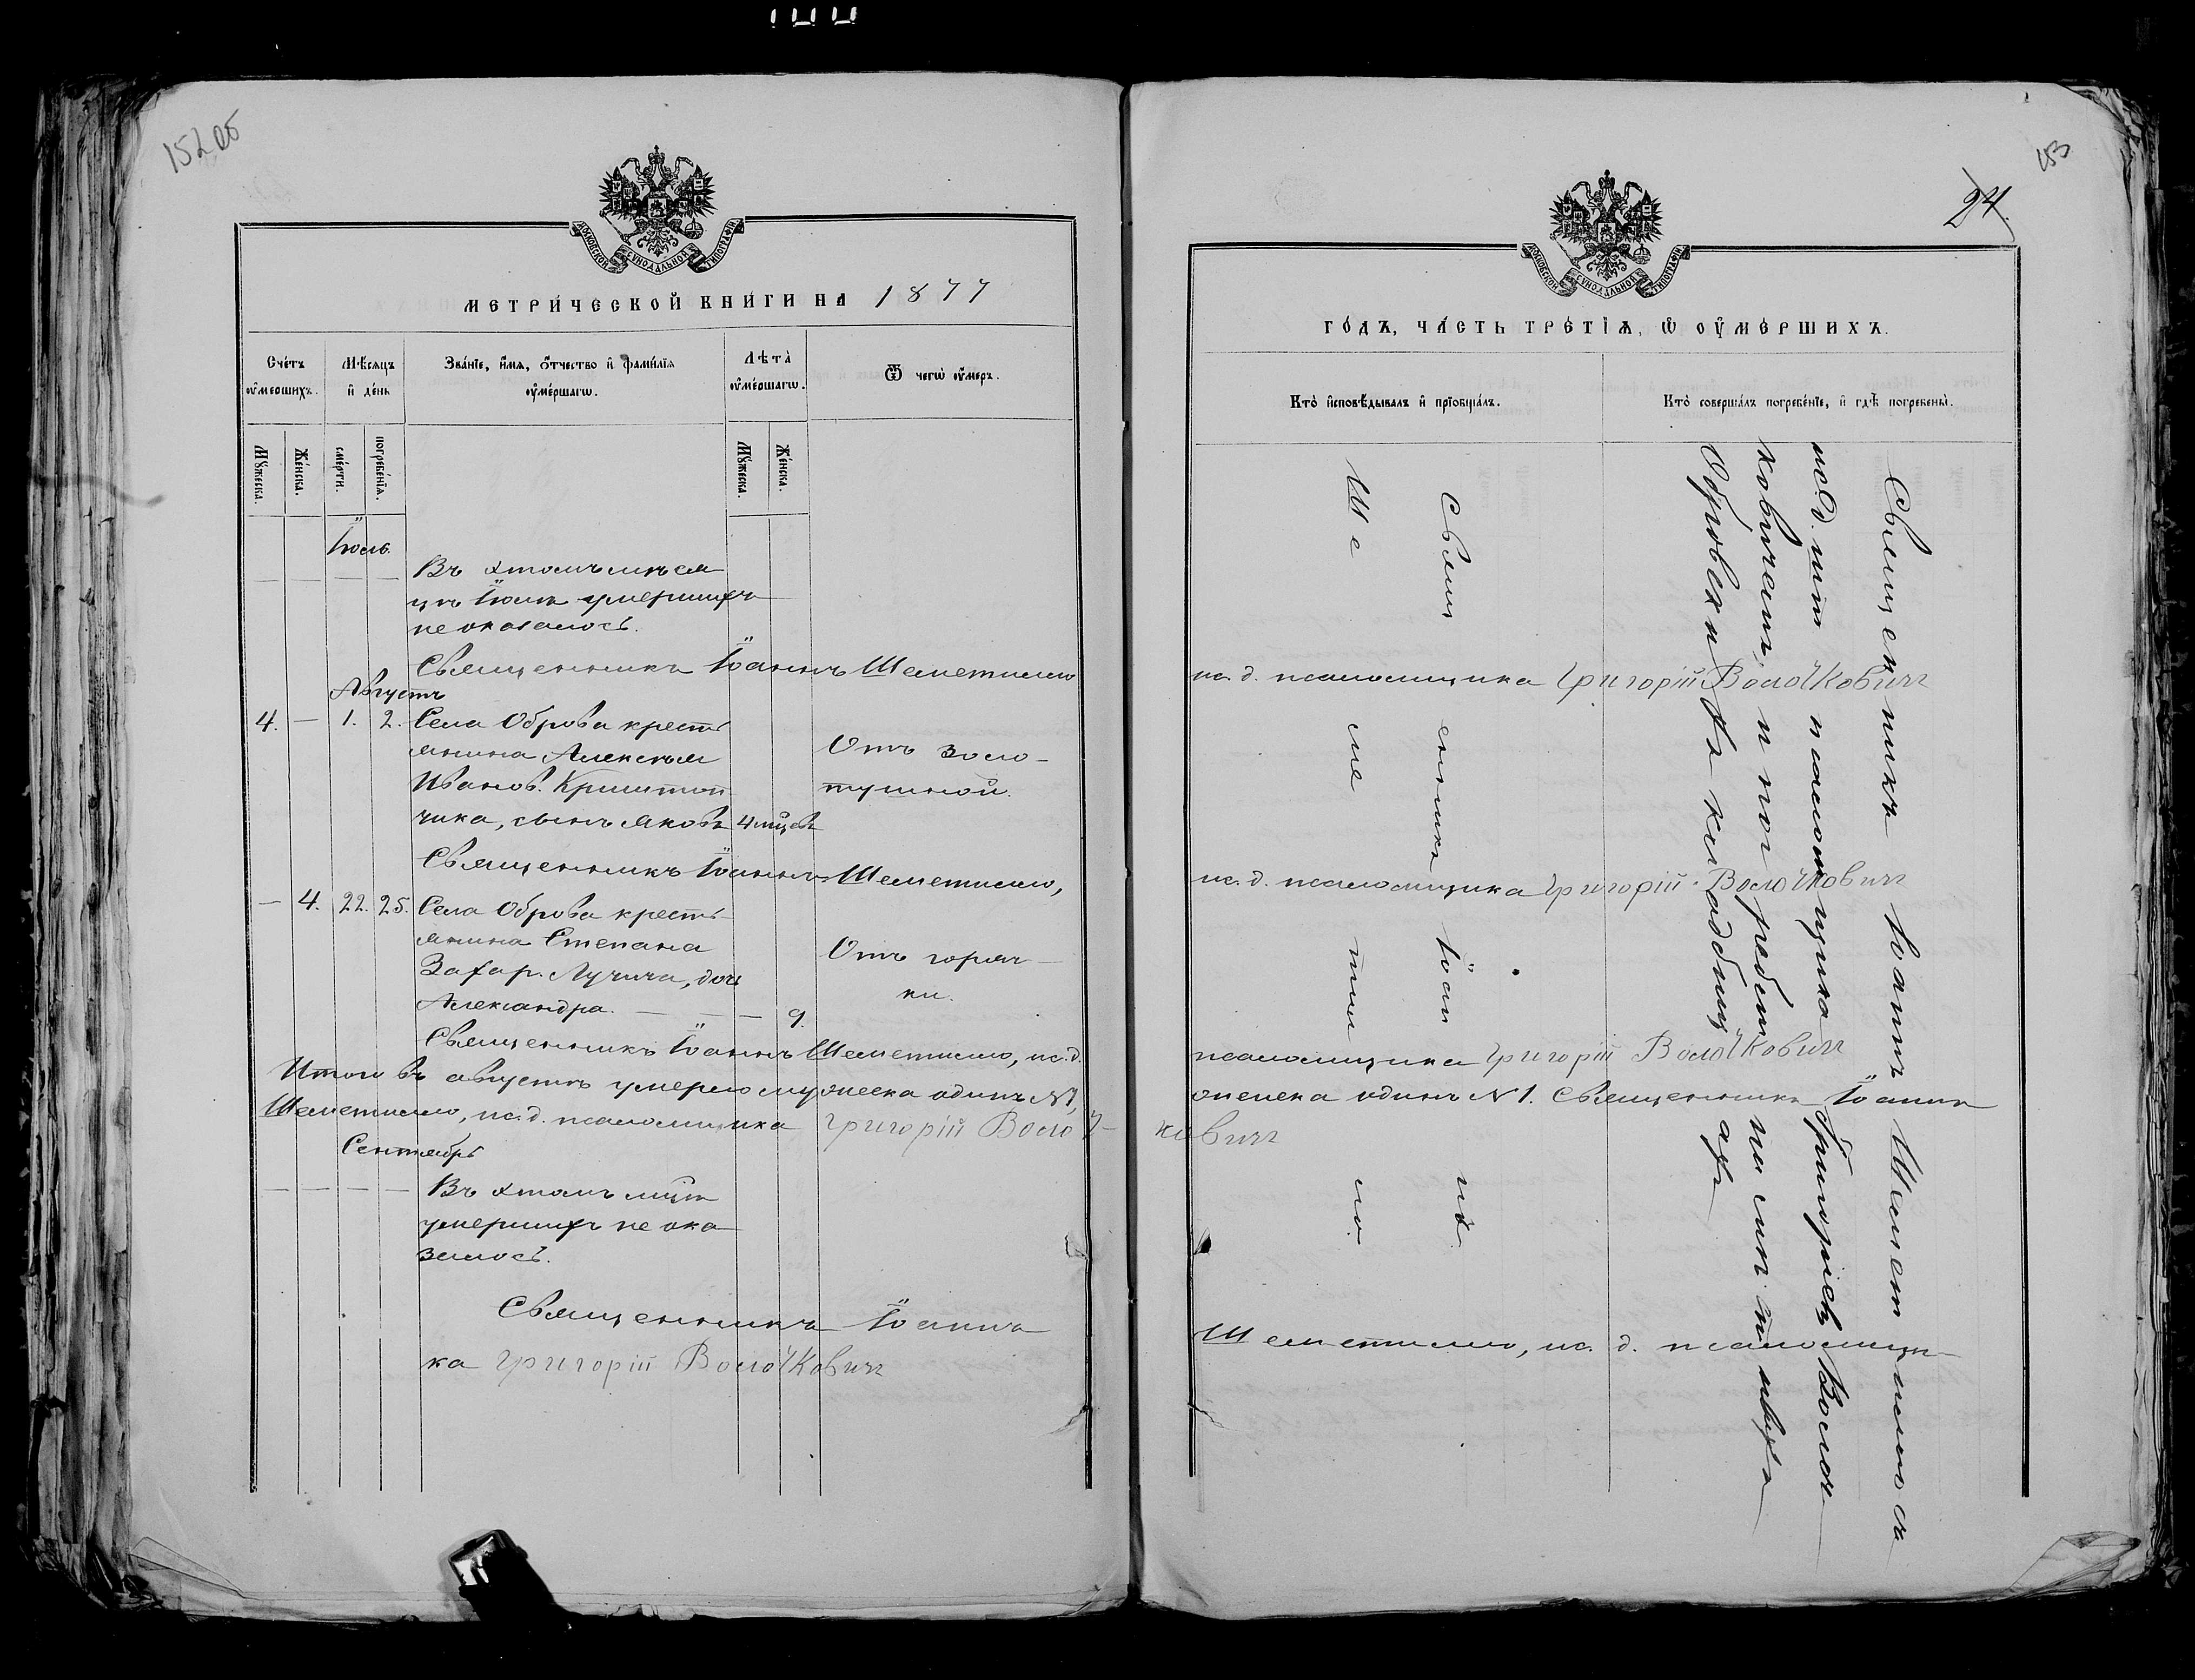 152 об
МОСКОВСКОЙ СѴНОДАЛЬНОЙ ТИПОГРАФІИ
МЕТРИ́ЧЕСКОЙ КНИ́ГИ НА 1877
Сче́тъ ᲂу҆ме́ршихъ.
Мѣ́сѧцъ и҆ де́нь
Зва́нїе, и҆́мѧ, ѻ҆́тчество и҆ фами́лїѧ ᲂу҆ме́ршагѡ.
Лѣта̀ ᲂу҆ме́ршагѡ.
Ѿ чегѡ̀ ᲂу҆́меръ.
Мꙋ́жеска.
Же́нска.
сме́рти.
погребе́нїѧ.
Мꙋ́жеска.
Же́нска.
Іюль.
Въ этомъ мѣся
цѣ Іюлѣ умершихъ
не оказалось.
Священникъ Іоаннъ Шеметилло
Августъ
4. — 1. 2. Села Оброва кресть
янина Алексѣя
Иванов. Криштоп
чика, сынъ Яковъ 4 мѣсѣ
Отъ золо-
тушной.
Священникъ Іоаннъ Шеметилло,
— 4. 22. 25. Села Оброва кресть-
янина Степана
Захар. Лучича, дочь
Александра. — — — 9.
Отъ горяч-
ки.
Священникъ Іоаннъ Шеметилло, ис.д.
Итого въ августѣ умерло мужеска одинъ №1,
Шеметилло, ис.д. псаломщика Григорій Волоч-
Сентябрь
— — — — Въ этомъ мѣсѣ
умершихъ не ока
залось.
Священникъ Іоаннъ
ка Григорій Волочковичъ
153
24.
МОСКОВСКОЙ СѴНОДАЛЬНОЙ ТИПОГРАФІИ
ГО́ДЪ, ЧА́СТЬ ТРЕ́ТІѦ, Ѡ҆ ОУ҆МЕ́РШИХЪ.
Кто̀ и҆сповѣ́дывалъ и҆ прїѡбща́лъ.
Кто̀ соверша́лъ погребе́нїе, и҆ гдѣ̀ погребены̀.
Священникъ Іоаннъ
Шеметилло.
Священникъ Іоаннъ Шеметилло съ
ис.д. псаломщика Григоріемъ Волоч
ковичемъ, и погребены на мѣстныхъ
Обровскихъ кладбищахъ
ис. д. псаломщика Григорій Волочковичъ
ис. д. псаломщика Григорій Волочковичъ
псаломщика Григорій Волочковичъ
женска одинъ №1. Священникъ Іоаннъ
ковичъ
Шеметилло, ис. д. псаломщи-